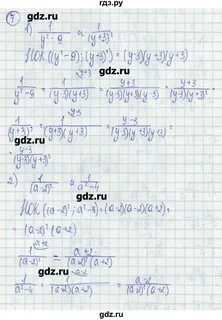 9
1) 1/(y²-9) и 1/(y+3)²
НОК ((y²-9); (y+3)²) = (y-3)(y+3)(y+3)
1/(y²-9) = 1/((y-3)(y+3)) = (y+3)/((y-3)(y+3)(y+3)) = (y+3)/((y-3)(y+3)²)
1/(y+3)² = 1/((y+3)(y+3)) = (y-3)/((y-3)(y+3)(y+3)) =
= (y-3)/((y-3)(y+3)²)
2) 1/(a-2)² и 1/(a²-4)
НОК ((a-2)²; a²-4) = (a-2)(a-2)(a+2) =
= (a-2)²(a+2)
1/(a-2)² = (a+2)/((a-2)²(a+2))
1/(a²-4) = 1/((a-2)(a+2)) = (a-2)/((a-2)²(a+2))